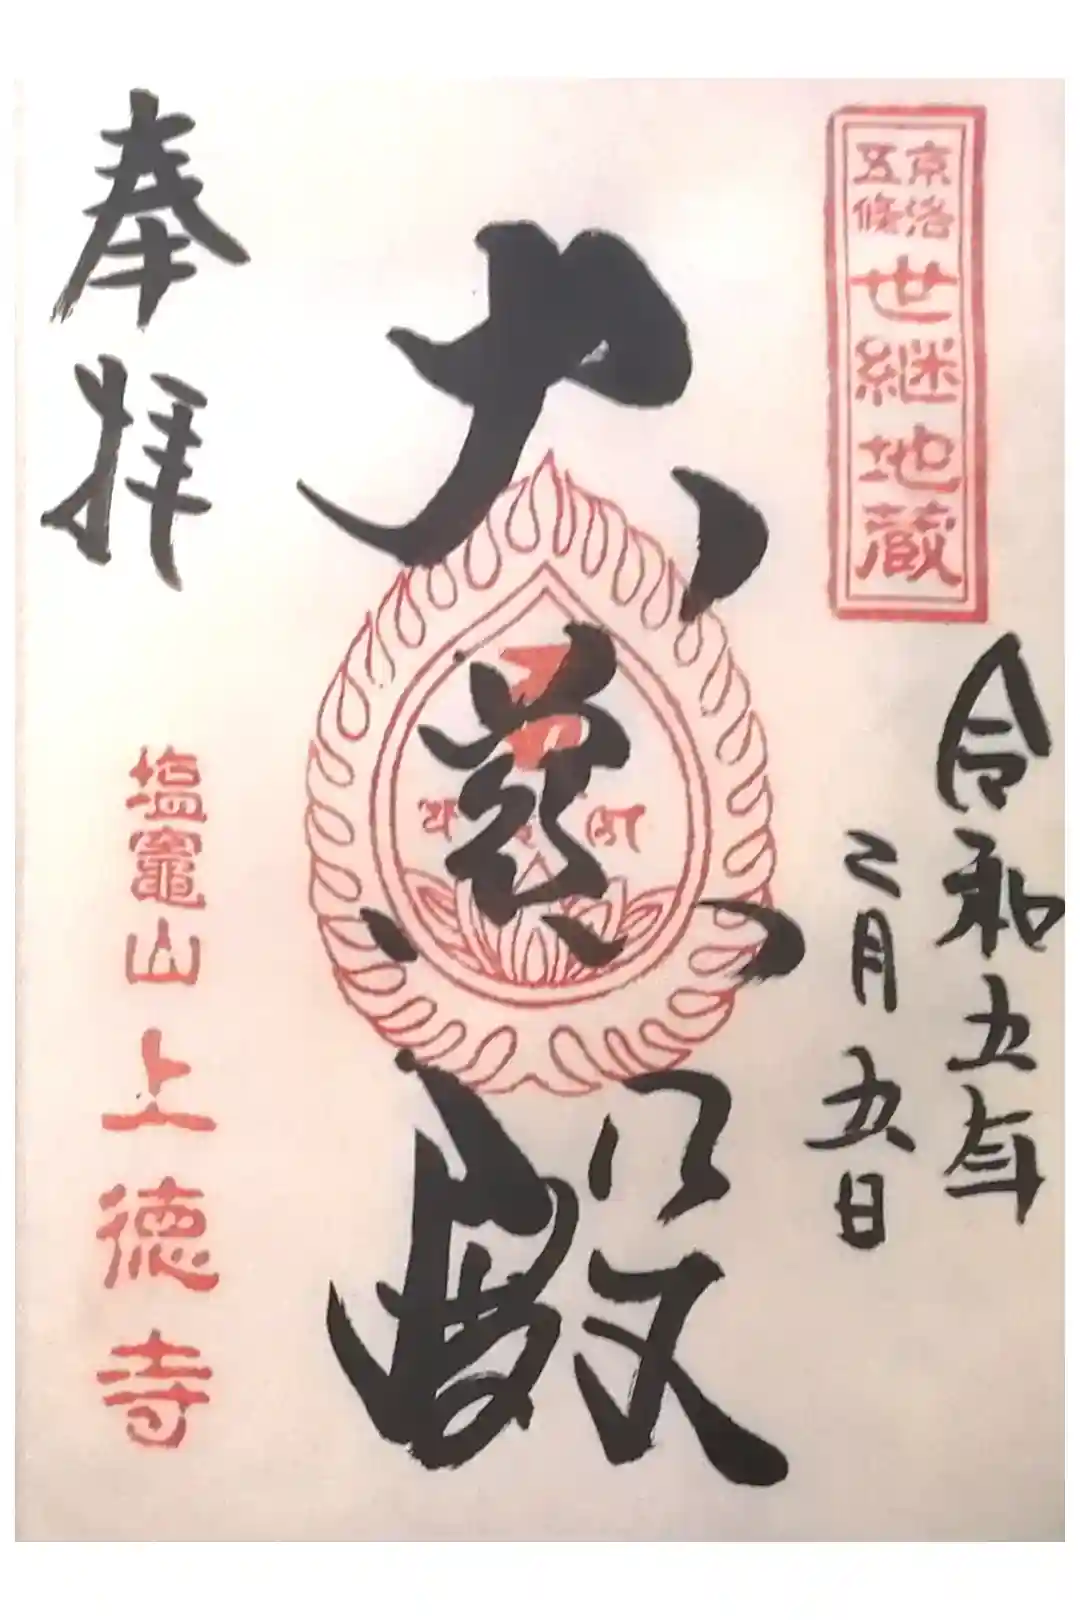 京洛
五條
世継地蔵
令和五年
二月五日
大慈殿
奉拝
塩竈山上徳寺